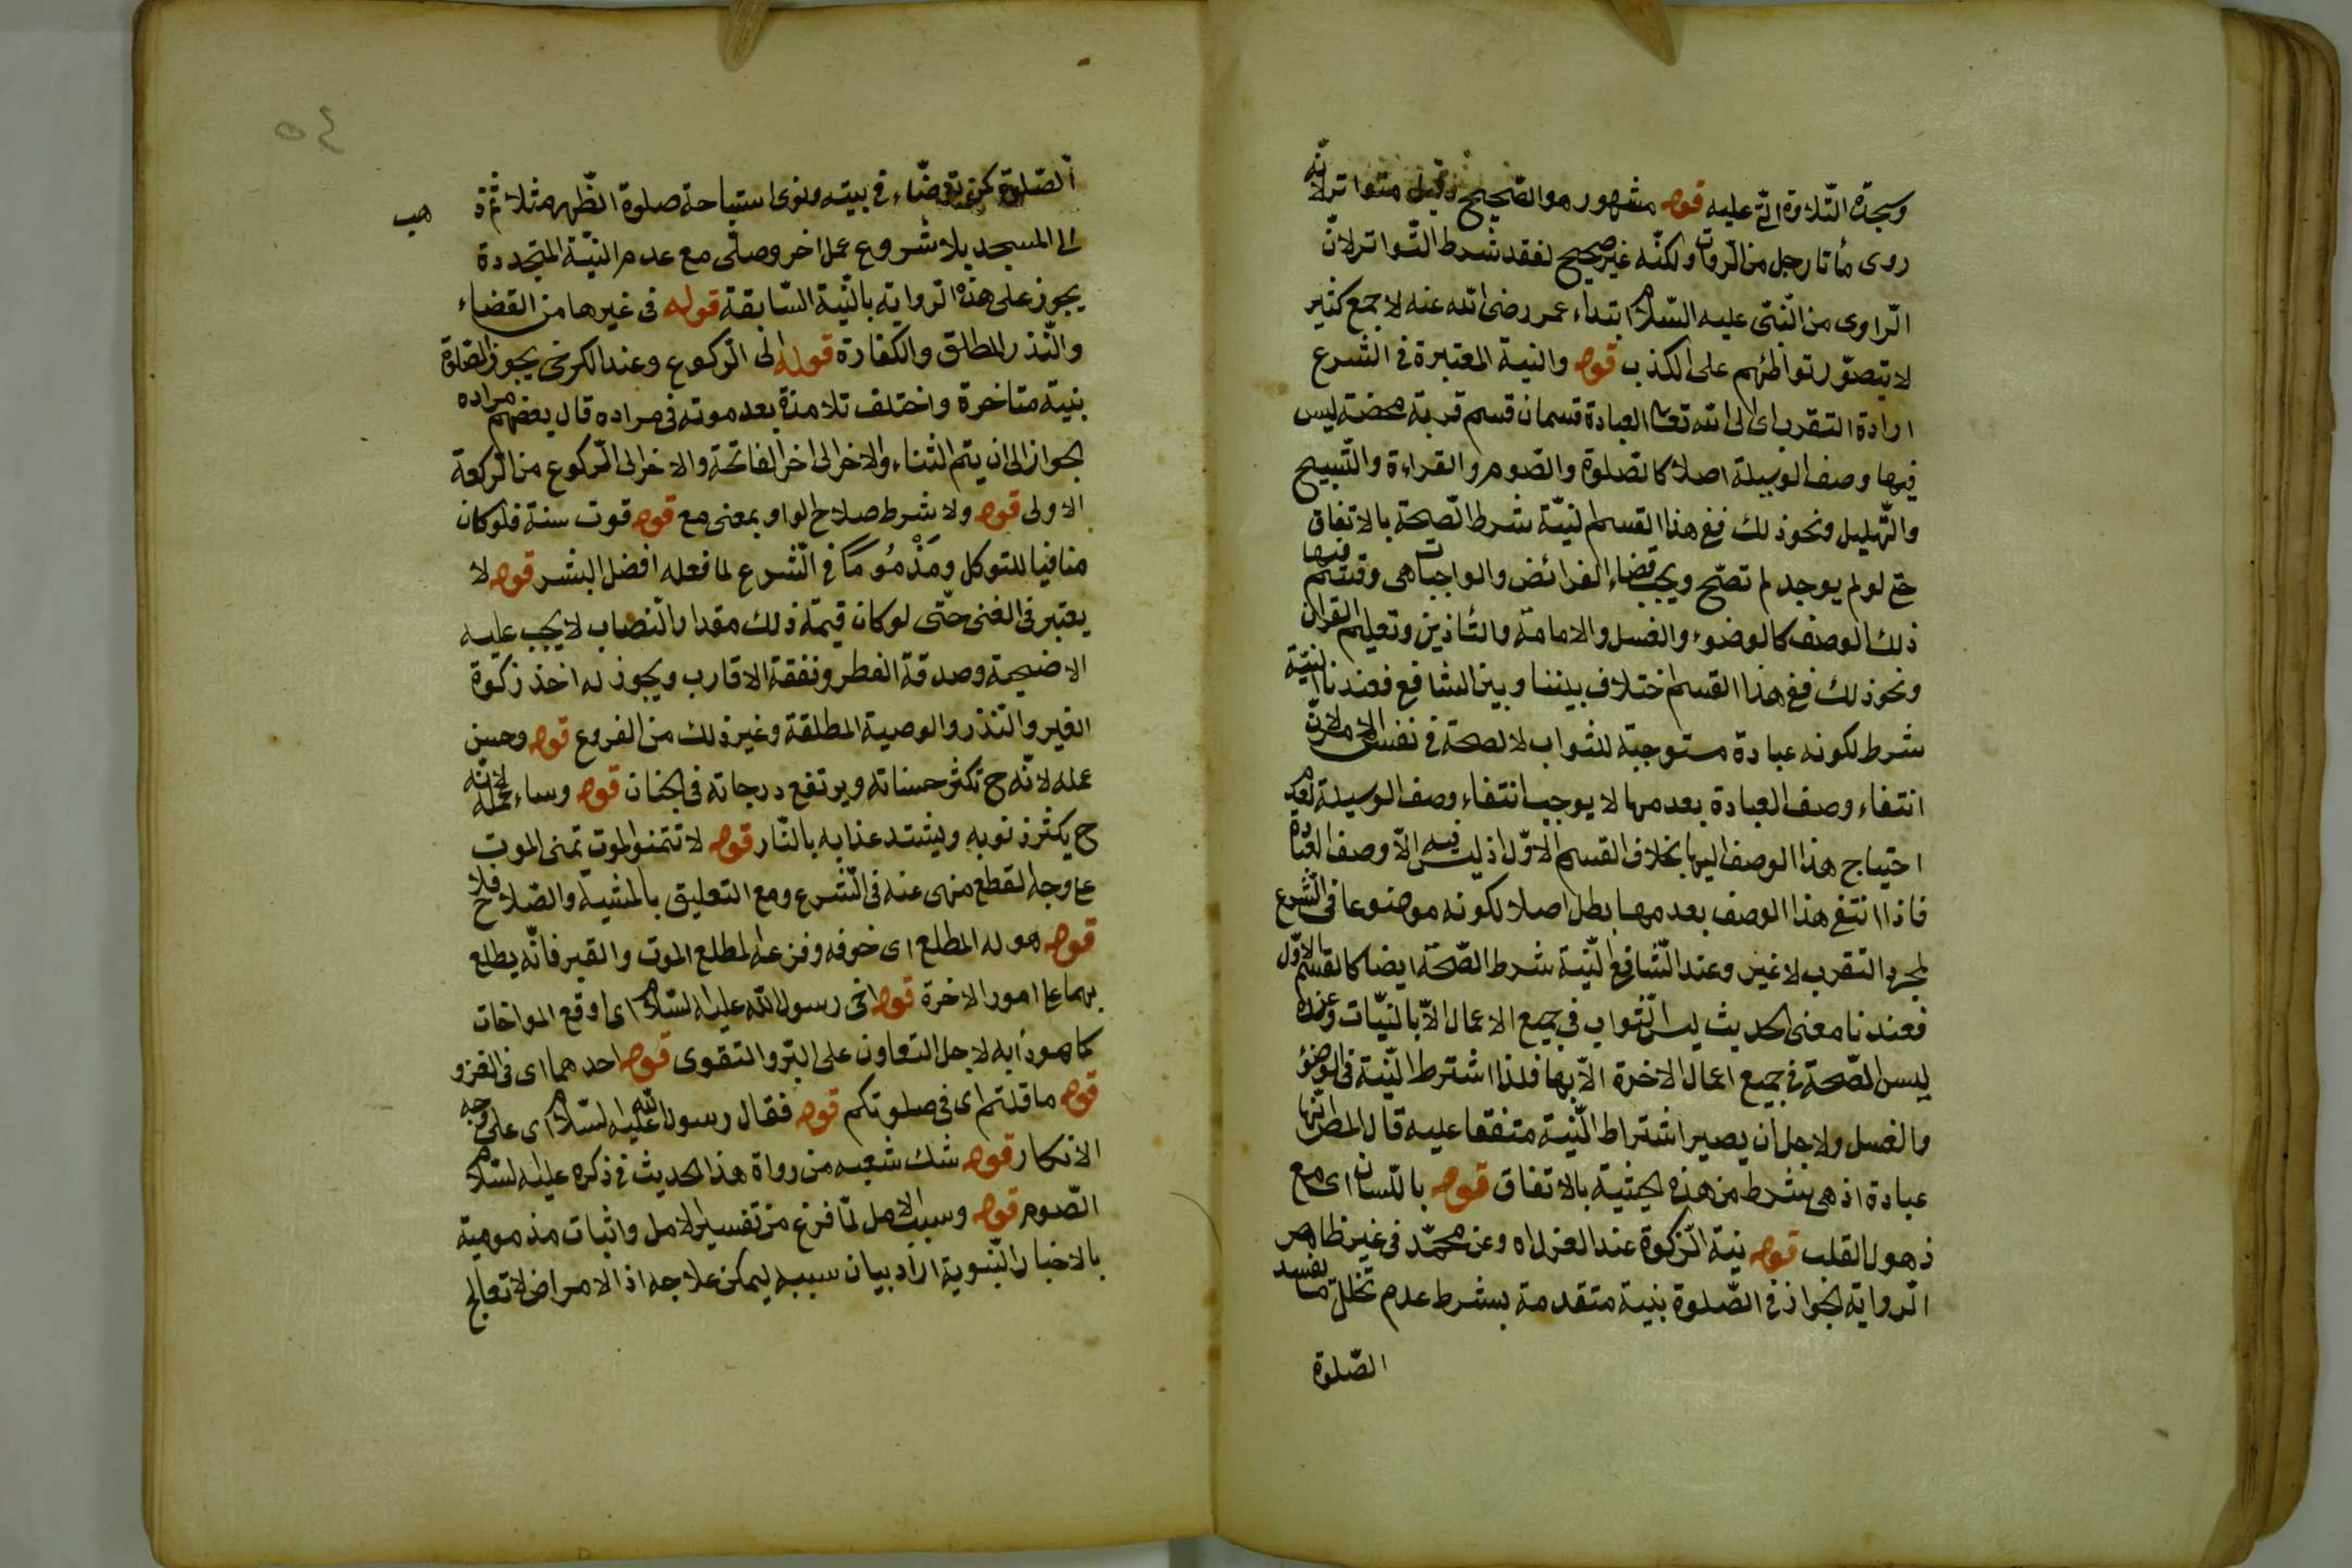 وسجدة التلاوة التى عليه قوله مشهور هو الصحيح وقيل متواتر لانه
روى مأتا رجل من الرواة ولكنه غير صحيح لفقد شرط التواتر لان
الراوى من النبى عليه السلام ابتداء عمر رضى الله عنه لا جمع كثير
لا يتصور تواطئهم على الكذب قوله والنية المعتبرة فى الشرع
ارادة التقرب اى الى الله تعالى العبادة قسمان قسم قربة محضة ليس
فيها وصف الوسيلة اصلا كالصلوة والصوم والقراءة والتسبيح
والتهليل ونحو ذلك ففى هذا القسم النية شرط الصحة بالاتفاق
حتى لو لم يوجد لم تصح ويجب قضاء الفرائض والواجبات هى وقسم فيها
ذلك الوصف كالوضوء والغسل والامامة والتأذين وتعليم القران
ونحو ذلك ففى هذا القسم اختلاف بيننا وبين الشافعى فعندنا النية
شرط لكونه عبادة مستوجبة للثواب لا لصحة فى نفس الامر لان
انتفاء وصف العبادة بعدمها لا يوجب انتفاء وصف الوسيلة لعدم
احتياج هذا الوصف اليها بخلاف القسم الاول اذ ليس فيه الا وصف العبادة
فاذا انتفى هذا الوصف بعدمها بطل اصلا لكونه موضوعا فى الشرع
لمجرد التقرب لا غير وعند الشافعى النية شرط الصحة ايضا كالقسم الاول
فعندنا معنى الحديث ليس الثواب فى جميع الاعمال الا بالنيات وعنده
ليس الصحة فى جميع اعمال الاخرة الا بها فلذا اشترط النية فى الوضوء
والغسل ولاجل ان يصير اشتراط النية متفقا عليه قال المص انها
عبادة اذ هى بشرط من هذه الحيثية بالاتفاق قوله باللسان اى مع
ذهول القلب قوله بنية الزكوة عند العزل اه وعن محمد فى غير ظاهر
الرواية الجواز فى الصلوة بنية متقدمة بشرط عدم تخلل ما يفسد
الصلوة
٥٤
الصلوة كمن توضاء فى بيته ونوى استباحة صلوة الظهر مثلا ثم ذهب
الى المسجد بلا شروع عمل اخر وصلى مع عدم النية المتجددة
يجوز على هذه الرواية بالنية السابقة قوله فى غيرها من القضاء
والنذر المطلق والكفارة قوله الى الركوع وعند الكرخى يجوز الصلوة
بنية متاخرة واختلف تلامذة بعد موته فى مراده قال بعضهم مراده
الجواز الى ان يتم الثناء والاخر الى اخر الفاتحة والاخر الى الركوع من الركعة
الاولى قوله ولا شرط صلاح الواو بمعنى مع قوله قوت سنة فلو كان
منافيا للتوكل ومذموما فى الشرع لما فعله افضل البشر قوله لا
يعتبر فى الغنى حتى لو كان قيمة ذلك مقدار النصاب لا يجب عليه
الاضحية وصدقة الفطر ونفقة الاقارب ويجوز له اخذ زكوة
الغير والنذر والوصية المطلقة وغير ذلك من الفروع قوله وحسن
عمله لانه ح تكثر حسناته ويرتفع درجاته فى الجنان قوله وساء عمله لانه
ح يكثر ذنوبه ويشتد عذابه بالنار قوله لا تتمنوا الموت تمنى الموت
على وجه القطع منهى عنه فى الشرع ومع التعليق بالمشية والصلاح فلا
قوله هول المطلع اى خوفه وفزعه المطلع الموت والقبر فانه يطلع
بهما على امور الاخرة قوله اخى رسول الله عليه السلام اى اوقع المواخات
كما هو دأبه لاجل التعاون على البر والتقوى قوله احدهما اى فى الغزو
قوله ما قلتم اى فى صلوتكم قوله فقال رسول الله عليه السلام اى على وجه
الانكار قوله شك شعبه من رواة هذا الحديث فى ذكره عليه السلام
الصوم قوله وسبب الامل لما فرغ من تفسير الامل واثبات مذمومية
بالاخبار النبوية اراد بيان سببه ليمكن علاجه اذ الامراض لا تعالج